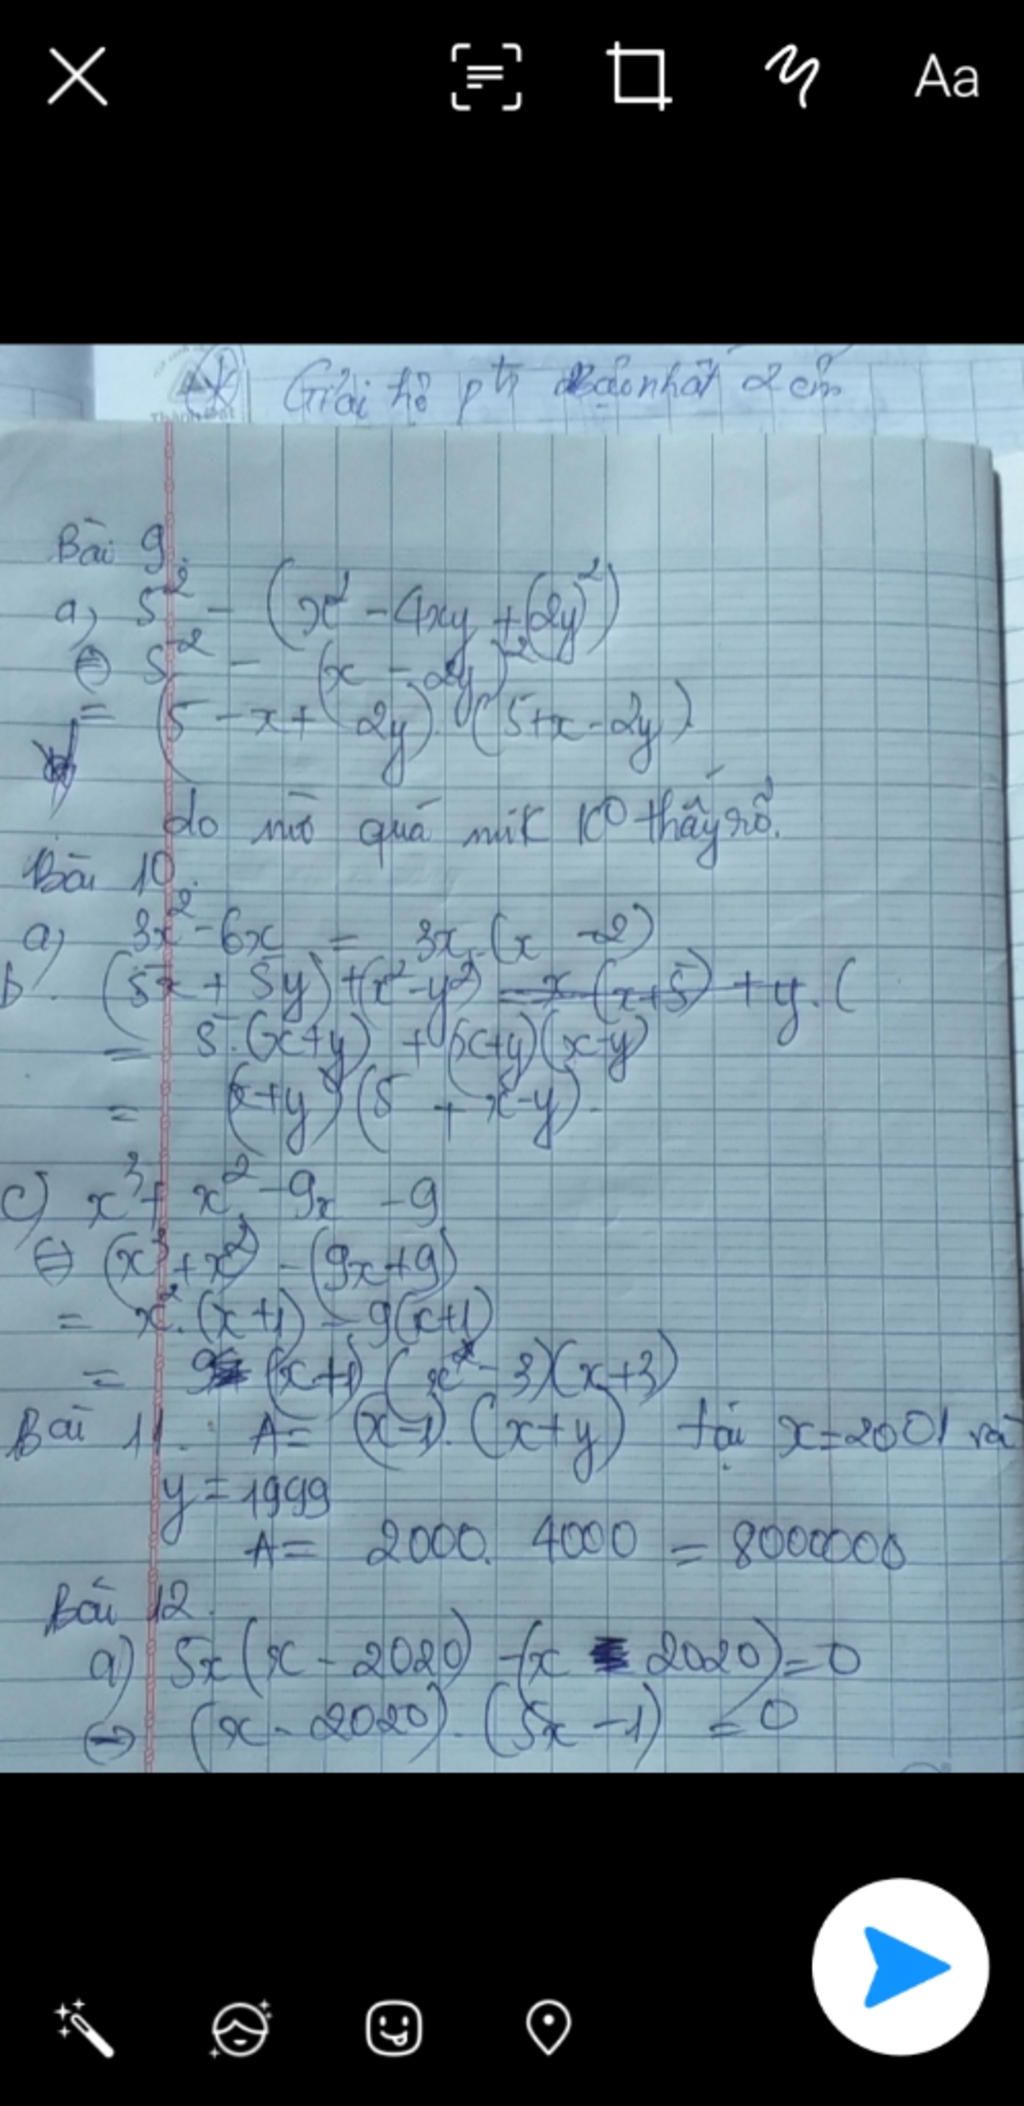 Aa
Giải hệ pth bậc nhất 2 ẩn
Bài 9.
a, 5² - (x² - 4xy + (2y)²)
⇔ 5² - (x - 2y)²
= (5 - x + 2y).(5 + x - 2y)
do mờ quá mik K⁰ thấy rõ.
Bài 10.
a, 3x² - 6x = 3x.(x - 2)
b. (5x + 5y) + (x² - y²) = x(x+5) + y.(
= 5.(x+y) + (x+y)(x-y)
= (x+y)(5 + x-y).
c) x³ + x² - 9x - 9
⇔ (x³ + x²) - (9x+9)
= x².(x+1) - 9(x+1)
= (x+1)(x - 3)(x+3)
Bài 11. A = (x-1).(x+y) tại x=2001 và
y = 1999
A = 2000. 4000 = 8000000
Bài 12.
a) 5x(x - 2020) - (x - 2020) = 0
⇔ (x - 2020).(5x - 1) = 0